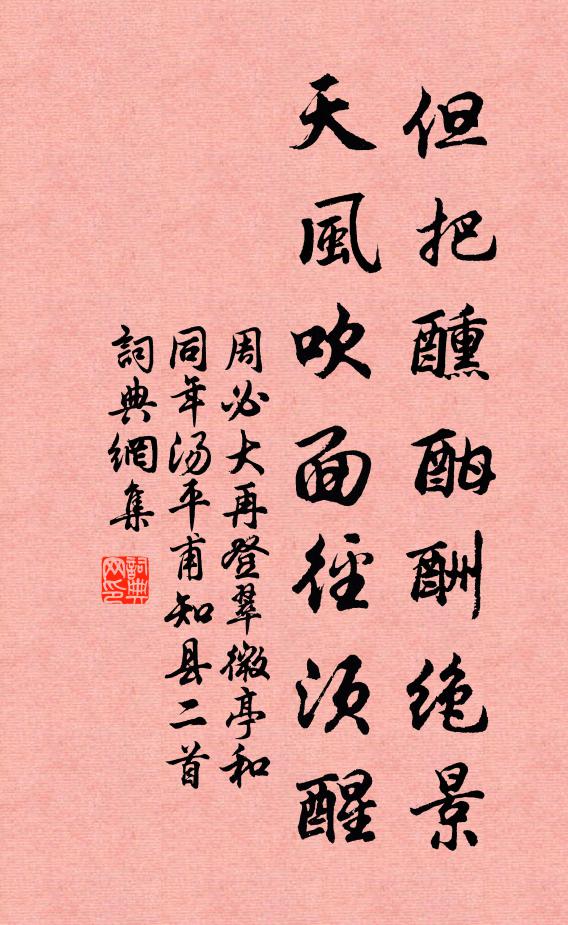 但把醺酣酬絶景
天風吹面徑須醒
周必大再登翠微亭和
同年汤平甫知县二首
詞典網集
詞典网印